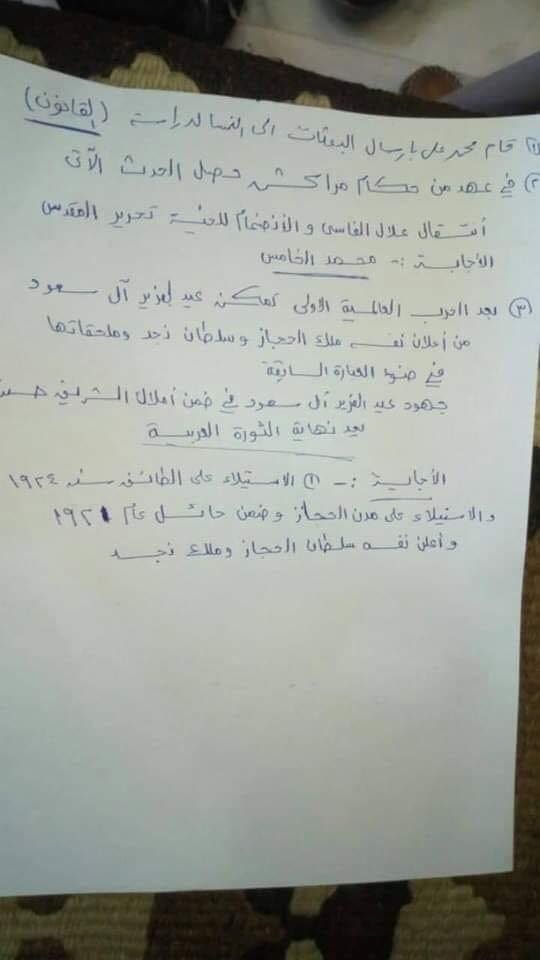 ١) قام محمد علي بإرسال البعثات الى النمسا لدراسة (القانون)
٢) في عهد من حكام مراكش حصل الحدث الآتي
أنتقال علال الفاسي و الأنضمام للجنة تحرير المقدس
الأجابة :- محمد الخامس
٣) بعد الحرب العالمية الاولى تمكن عبد العزيز آل سعود
من أعلان نفسه ملك الحجاز وسلطان نجد وملحقاتها
في ضوء العبارة السابقة
جهود عبد العزيز آل سعود في ضمن أملال الشريف حسين
بعد نهاية الثورة العربية
الأجابة :- ١) الاستيلاء على الطائف سنه ١٩٢٤
والاستيلاء على مدن الحجاز وضمن حائل عام ١٩٢١
وأعلن نفسه سلطان الحجاز وملك نجد